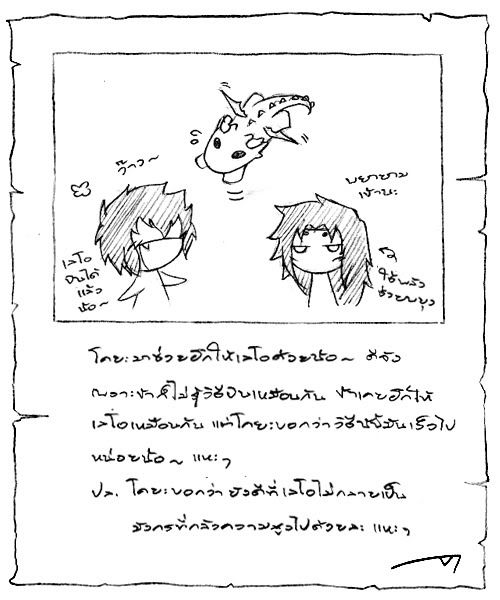 ว๊าว~
พยายาม
เข้านะ
เลโอ
บินได้
แล้ว
น้อ~
ใช้พลัง
ช่วยพยุง
โคยะมาช่วยฝึกให้เลโอด้วยน้อ~ ดีจัง
เพราะข้าก็ไม่รู้วิธีบินเหมือนกัน ข้าเคยฝึกให้
เลโอเหมือนกัน แต่โคยะบอกว่าวิธีนั้นมันเร็วไป
หน่อยน้อ~ แหะๆ
ปล. โคยะบอกว่า ยังดีที่เลโอไม่กลายเป็น
มังกรที่กลัวความสูงไปด้วยละ แหะๆ